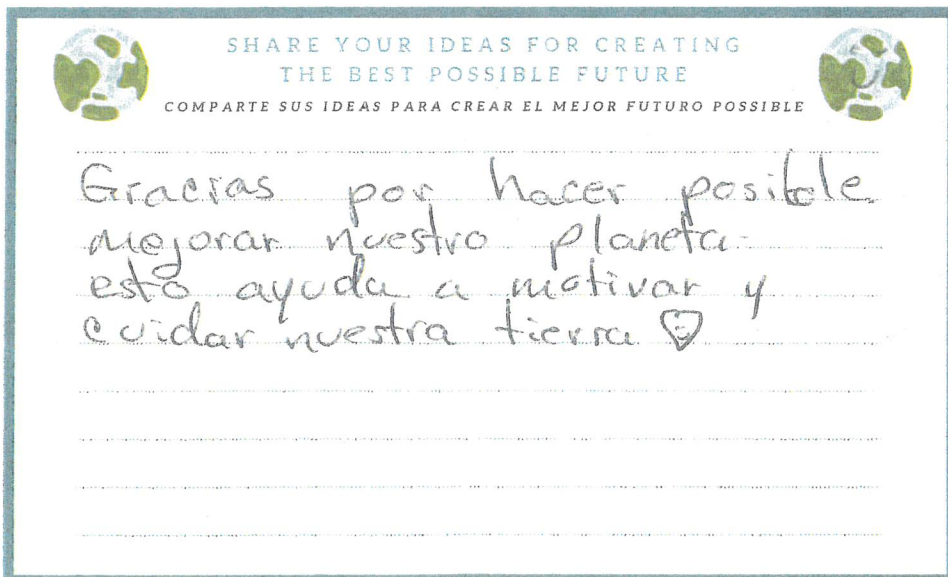 SHARE YOUR IDEAS FOR CREATING
THE BEST POSSIBLE FUTURE
COMPARTE SUS IDEAS PARA CREAR EL MEJOR FUTURO POSSIBLE
Gracias por hacer posible
mejorar nuestro planeta.
esto ayuda a motivar y
cuidar nuestra tierra